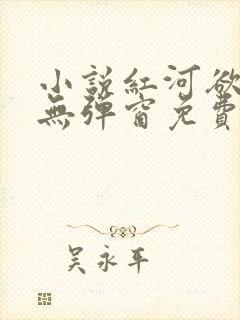 小說紅河欲
無彈窗免費
吳永平